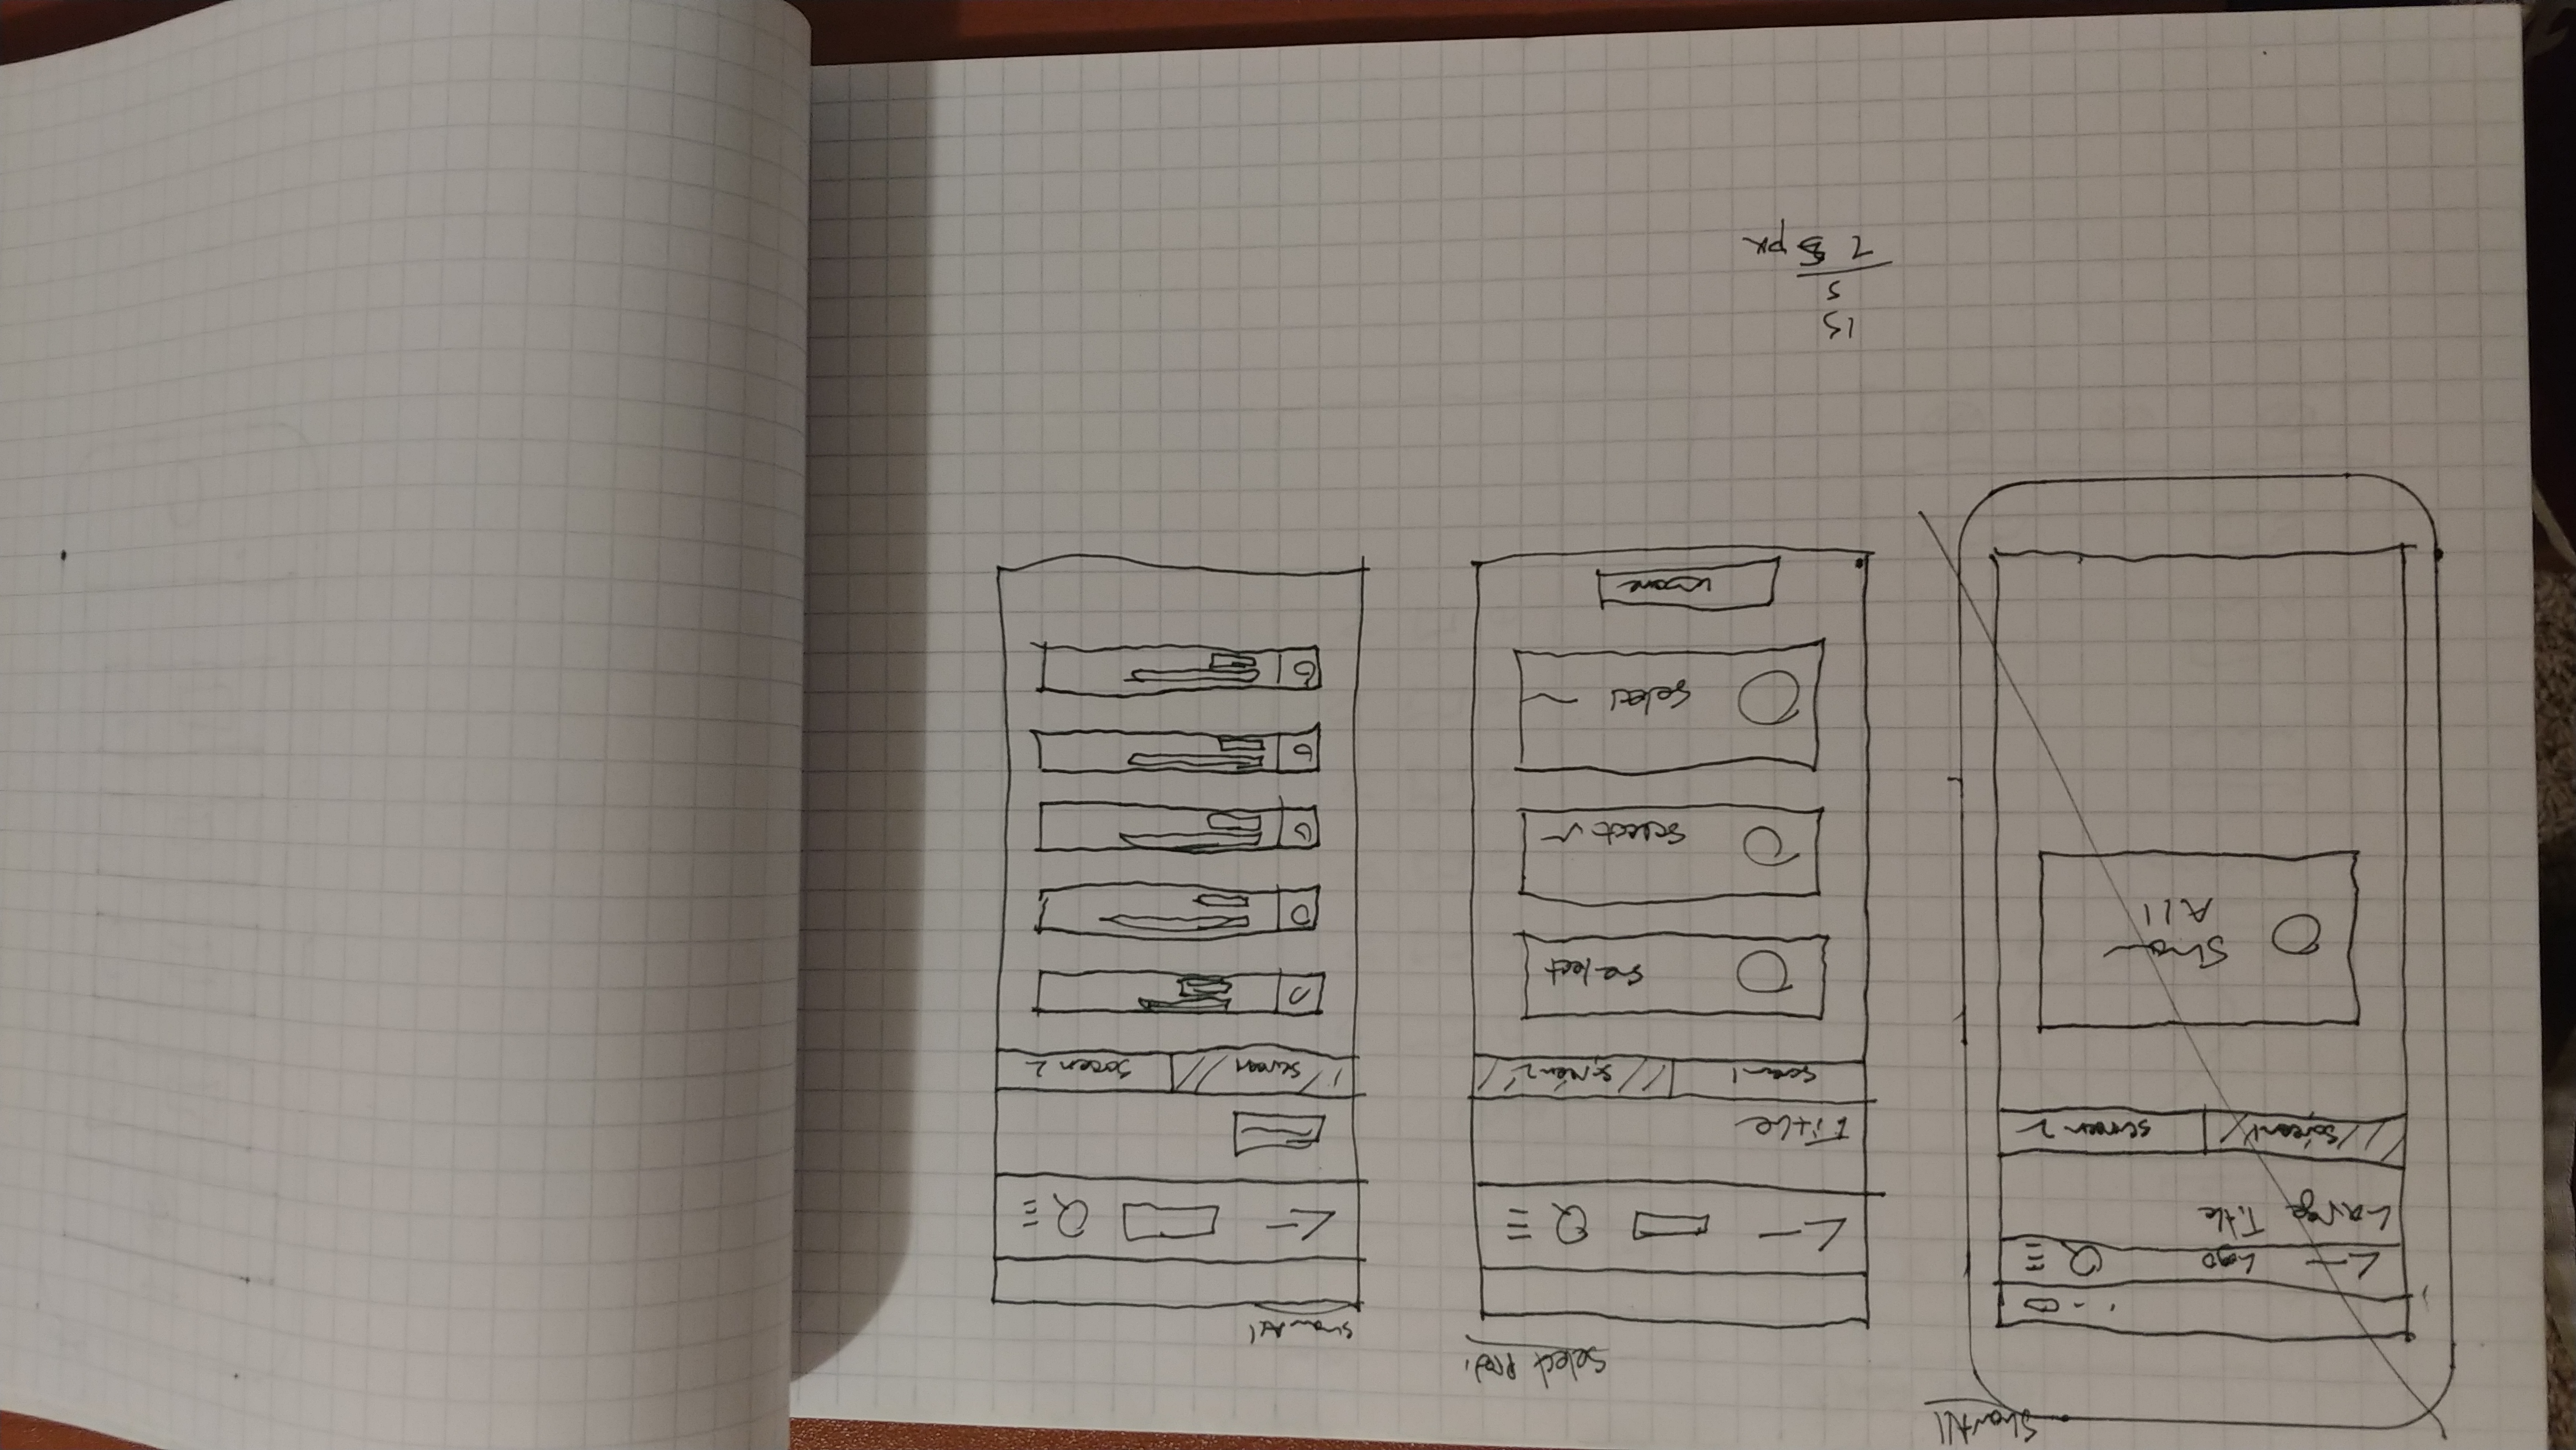 Show All
Logo
Large Title
screen 1
screen 2
Show
All
Select Prod.
Title
screen 1
screen 2
select
select
select
Show All
screen
screen 2
15
5
75 px